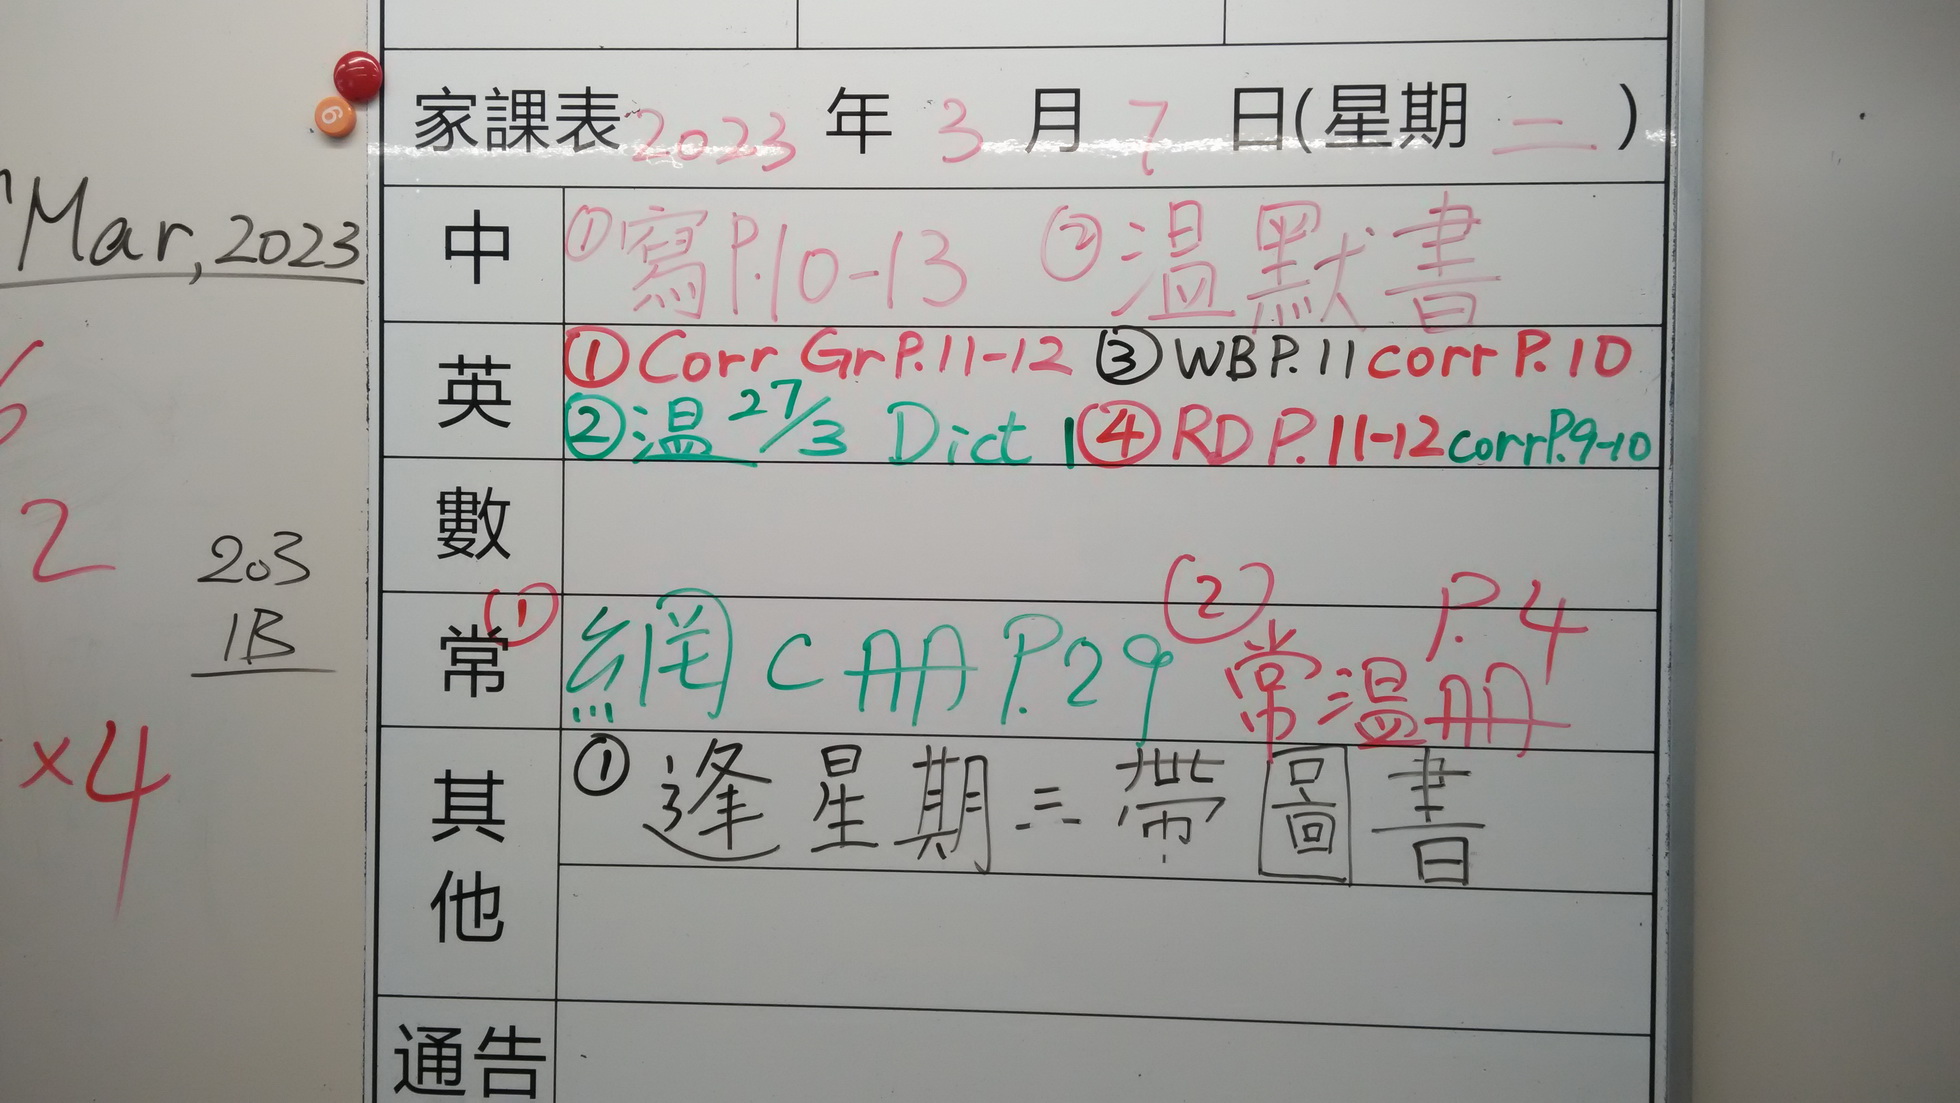 Mar, 2023
2
203
1B
×4
6
家課表 2023 年 3 月 7 日(星期 二 )
中 ①寫P.10-13 ②温默書
英 ①Corr Gr P.11-12 ③WB P.11 corr P.10
②温 27/3 Dict 1 ④RD P.11-12 corr P.9-10
數
常 ①網 C 冊 P.29 ② 常温冊 P.4
其他 ① 逢星期三帶圖書
通告